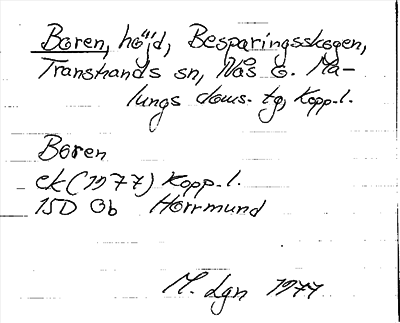 Boren, höjd, Besparingsskogen,
Transtrands sn, Nås o. Ma-
lungs doms. tg, Kopp. l.
Boren
ek (1977) Kopp. l.
15D 0b Hörrmund
M. Lgn 1977